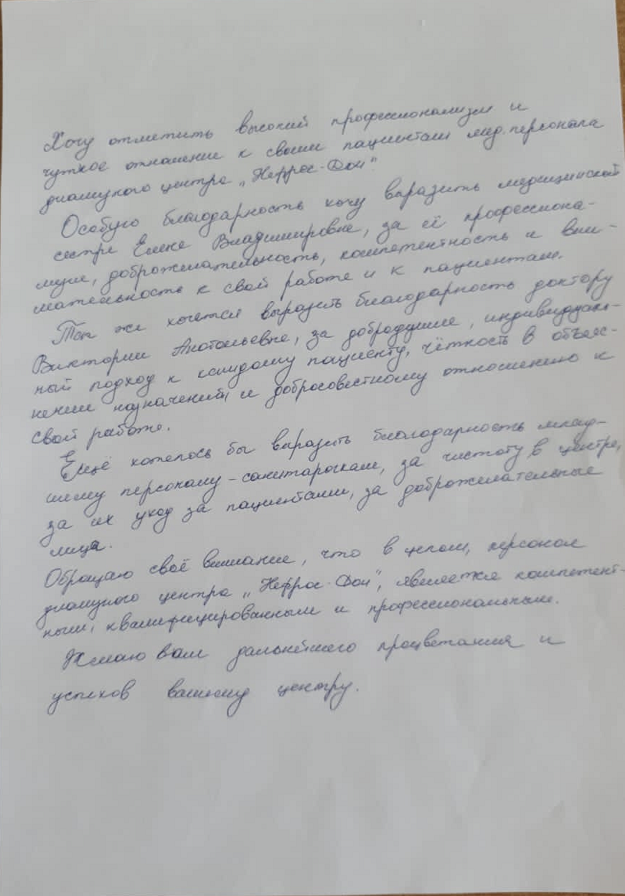 Хочу отметить высокий профессионализм и
чуткое отношение к своим пациентам мед.персонала
диализного центра „Нефрос-Дон"
Особую благодарность хочу выразить медицинской
сестре Елене Владимировне, за её профессиона-
лизм, доброжелательность, компетентность и вни-
мательность к свой работе и к пациентам.
Так же хочется выразить благодарность доктору
Виктории Анатольевне, за добродушие, индивидуаль-
ный подход к каждому пациенту, чёткость в объяс-
нении назначений и добросовестному отношению к
свой работе.
Ещё хотелось бы выразить благодарность млад-
шему персоналу – санитарочкам, за чистоту в центре,
за их уход за пациентами, за доброжелательные
лица.
Обращаю своё внимание, что в целом, персонал
диализного центра „Нефрос-Дон", является компетент-
ным, квалифицированным и профессиональным.
Желаю вам дальнейшего процветания и
успехов вашему центру.